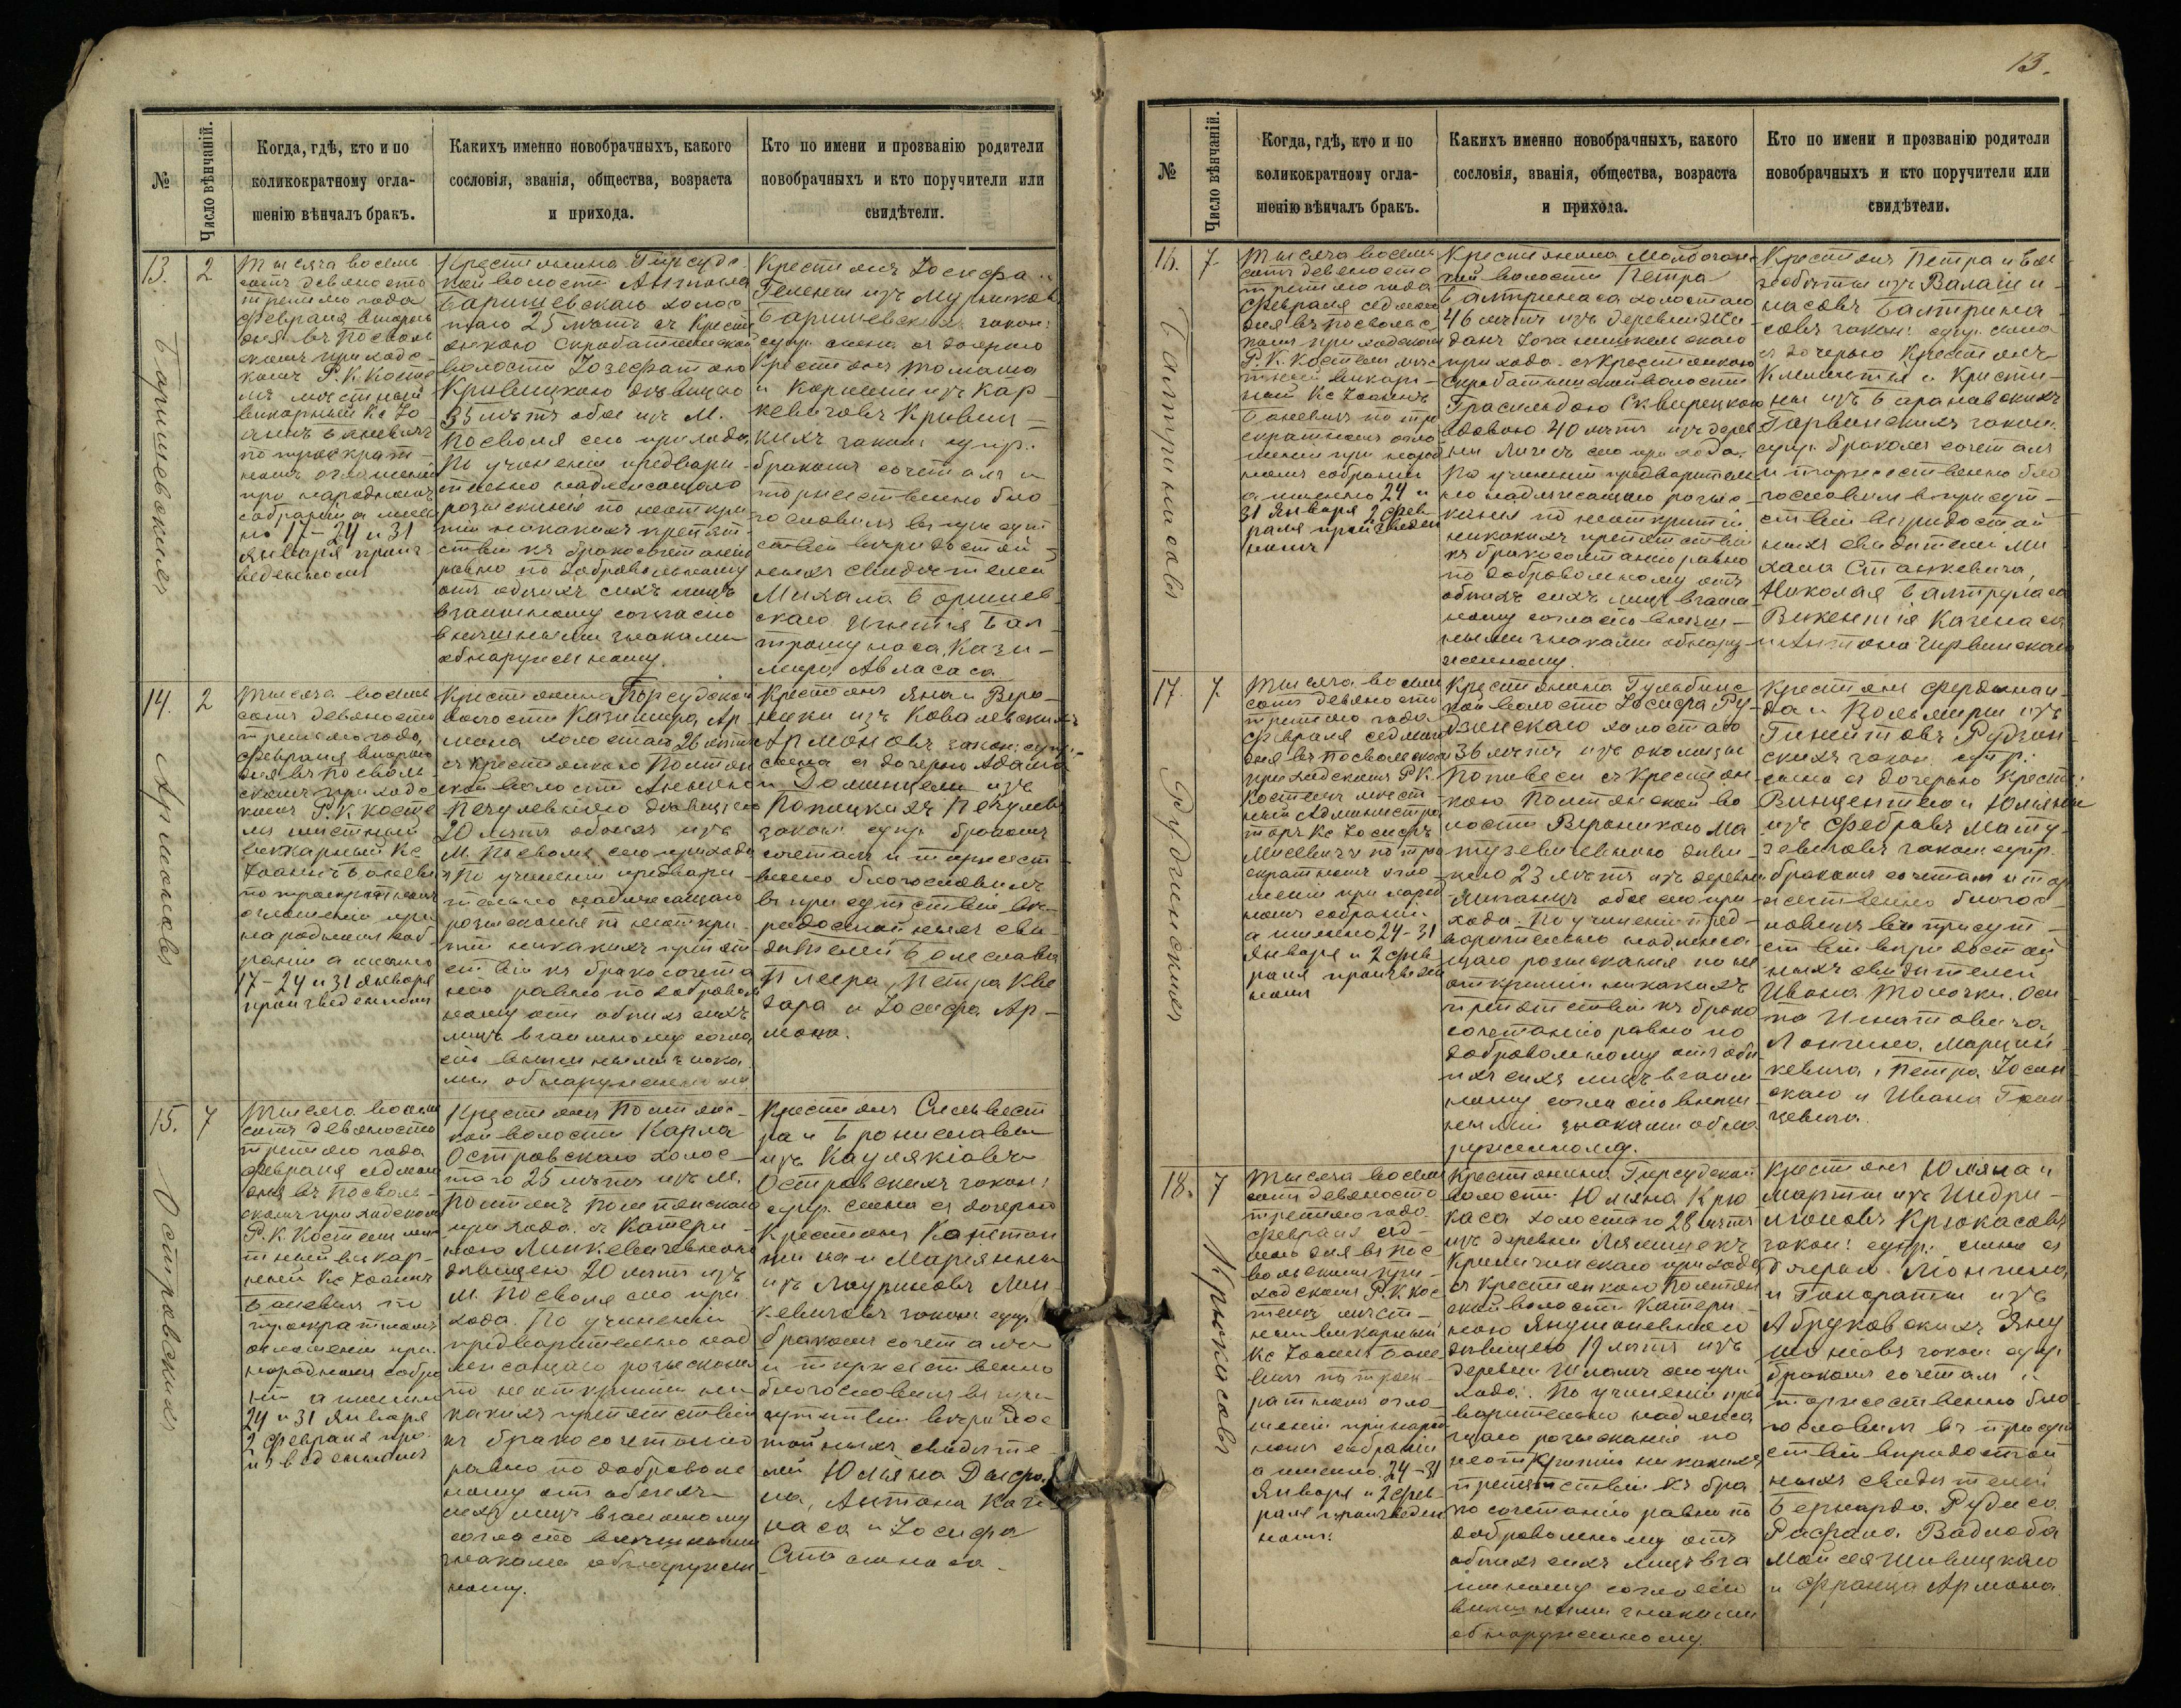 13.
№
Число вѣнчаній.
Когда, гдѣ, кто и по
коликократному огла-
шенію вѣнчалъ бракъ.
Какихъ именно новобрачныхъ, какого
сословія, званія, общества, возраста
и прихода.
Кто по имени и прозванію родители
новобрачныхъ и кто поручители или
свидѣтели.
13.
2
Баришевскихъ
Тысяча восемь
сотъ девяносто
третьяго года
Февраля втораго
дня въ Посволь
скомъ приходс-
комъ Р. К. Косте
лѣ мѣстный
викарный Кс Іо-
аннъ Баневичъ
по троекрат-
номъ оглашеніи
при народномъ
собраніи а имен
но 17-24 и 31
Января произ
веденномъ
Крестьянина Гирсудс
кой волости Антона
Баришевскаго холос
таго 25 лѣтъ съ Крестья
нкою Скробатишской
волости Іозефатою
Кривицкою дѣвицею
35 лѣтъ обое изъ М.
Посволя сего прихода
По учиненіи предвари
тельно надлежащаго
розысканія по неоткры
тіи никакихъ препят
ствій къ бракосочетанію
равно по добровольному
отъ обоихъ сихъ лицъ
взаимному согласію
внѣшными знаками
обнаруженному.
Крестьянъ Іосифа и
Гелены изъ Мушиков
Баришевскихъ закон:
супр. сына съ дочерью
Крестьянъ Томаша
и Кориліи изъ Кар
кевичовъ Кривиц=
кихъ закон: супр.
бракомъ сочеталъ и
торжественно бла
гословилъ въ присут
ствіи вѣридостой
ныхъ свидѣтелей
Михала Баришев
скаго Игнатія Бал
трошунаса, Кази-
мира Авласаса
14.
2
Армоновъ
Тысяча восемь
сотъ девяносто
третьяго года
Февраля втораго
дня въ Посволь
скомъ приходс
комъ Р. К. Косте
лѣ мѣстный
викарный Кс
Іоаннъ Баневи
по троекратномъ
оглашеніи при
народномъ соб-
раніи а именно
17-24 и 31 Января
произведенномъ
Крестьянина Гирсудской
волости Казимира Ар
мона холостаго 26 лѣтъ
съ крестьянкою Поитон
ской волости Анною
Пекулевною дѣвицею
20 лѣтъ обоихъ изъ
М. Посволя сего прихода
По учиненіи предвари
тельно надлежащаго
розысканія по неоткры-
тіи никакихъ препят
ствій къ бракосочета
нію равно по доброволь
ному отъ обоихъ сихъ
лицъ взаимному согла
сію внѣшными знака
ми обнаруженному
Крестьянъ Яна и Веро-
ники изъ Ковалевскихъ
Армоновъ закон: супр:
сына съ дочерью Адама
и Доминцели изъ
Папицкихъ Пекулевъ
закон: супр. бракомъ
сочеталъ и торжест
венно благословилъ
въ присутствіи вѣ-
ридостойныхъ сви
дѣтелей Болеслава
Петра Кве
тора и Іосифа Ар-
мона.
15.
7
Островскихъ
Тысяча восемь
сотъ девяносто
третьяго года
Февраля седмаго
дня въ Посволь-
скомъ приходском
Р. К. Костелѣ мѣс
тный викар-
ный Кс Іоаннъ
Баневичъ по
троекратномъ
оглашеніи при
народномъ собра
ніи а именно
24 и 31 Января
2 Февраля про
изведенномъ
Крестьянина Поитонс-
кой волости Карла
Островскаго холос-
таго 25 лѣтъ изъ М.
прихода съ Катери-
ною Линкевичевною
дѣвицею 20 лѣтъ изъ
М. Посволя сего при
хода. По учиненіи
предварительно над
лежащаго розысканія
по неоткрытіи ни
какихъ препятствій
къ бракосочетанію
равно по доброволь
ному отъ обоихъ
сихъ лицъ взаимному
согласію внѣшными
знаками обнаружен
ному.
Крестьянъ Сильвест
ра и Брониславы
изъ
Островскихъ закон:
супр. сына съ дочерью
Крестьянъ Констан
тина и Маріянны
изъ Лауриновъ Лин
кевичовъ закон: супр
бракомъ сочеталъ
и торжественно
благословилъ въ при
сутствіи вѣридос
тойныхъ свидѣте-
лей Юліяна
Антона Каче
наса и Іосифа
16.
7
Балтринасовъ
Тысяча восемь
сотъ девяносто
третьяго года
Февраля седмаго
дня въ посвольс
комъ приходском
Р. К. Костелѣ мѣс
тный викар-
ный Кс Іоаннъ
Баневичъ по тро
екратномъ огла
шеніи при народ
номъ собраніи
а именно 24 и
31 Января 2 Фев-
раля произведен
номъ
Крестьянина
кой волости Петра
Балтринаса холостаго
46 лѣтъ изъ деревни
прихода съ крестьянкою
Скробатишской волости
вдовою 40 лѣтъ изъ дерев
ни сего прихода.
По учиненіи предваритель
но надлежащаго розыс-
канія по неоткрытіи
никакихъ препятствій
къ бракосочетанію равно
по добровольному отъ
обоихъ сихъ лицъ взаи-
ному согласію внѣш-
ными знаками обнару-
женному.
Крестьянъ Петра и
изъ Валаши
насовъ Балтрина
совъ закон: супр. сына
съ дочерью Крестьянъ
Климентія и Кристи-
ны изъ Барановскихъ
закон.
супр. бракомъ сочеталъ
и торжественно бла
гословилъ въ присут-
ствіи вѣридостой
ныхъ свидѣтелей Ми
хала Станкевича,
Николая Балтрунаса
Викентія Каченаса
и Антона Чирвинскаго
17.
7
Рудзинскихъ
Тысяча восемь
сотъ девяносто
третьяго года
Февраля седмаго
дня въ Посвольском
приходскомъ Р К.
Костелѣ мѣст
ный Администра
торъ Кс Іосифъ
Мисевичъ по тро
екратномъ огла
шеніи при народ
номъ собраніи
а именно 24-31
Января и 2 фев
раля произведен
номъ
Крестьянина Гульбинс
кой волости Іосифа Ру
дзинскаго холостаго
36 лѣтъ изъ околицы
съ крестьян
кою Поитонской во
лости Вероникою Ма
тузевичевною дѣви-
цею 23 лѣтъ изъ деревни
обое сего при
хода. По учиненіи пред
варительно надлежа
щаго розысканія по не
открытіи никакихъ
препятствій къ брако
сочетанію равно по
добровольному отъ обо
ихъ сихъ лицъ взаим
ному согласію внѣш
ными знаками обна
руженному.
Крестьянъ Фердинан-
да и изъ
Рудзин
скихъ закон. супр.
сына съ дочерью Крест:
Винцентія и Юліяны
изъ Матy
зевичовъ закон: супр.
бракомъ сочеталъ и тор
жественно благос-
ловилъ въ присут-
ствіи вѣридостой
ныхъ свидѣтелей
Ивана Оси
па Игнатовича,
Лонгина Марцин
кевича, Петра
скаго и Ивана
18.
7
Крюкасовъ
Тысяча восемь
сотъ девяносто
третьяго года
Февраля сед
маго дня въ Пос
вольскомъ при-
ходскомъ Р. К. Кос
телѣ мѣст-
ный викарный
Кс Іоаннъ Бане
вичъ по троек-
ратномъ огла
шеніи при народ
номъ собраніи
а именно 24-31
Января и 2 Фев-
раля произведен
номъ:
Крестьянина Гирсудской
волости Юліяна Крю
каса холостаго 28 лѣтъ
изъ деревни
прихода
съ крестьянкою Поитон
ской волости Катери-
ною Янушоневною
дѣвицею 19 лѣтъ изъ
деревни сего при
хода. По учиненіи пред
варительно надлежа
щаго розысканія по
неоткрытію никакихъ
препятствій къ бра
косочетанію равно по
добровольному отъ
обоихъ сихъ лицъ вза
имному согласію
внѣшными знаками
обнаруженному.
Крестьянъ Юліяна и
Марты изъ Индри-
люновъ Крюкасовъ
закон: супр. сына съ
дочерью Лонгина
и Гонораты изъ
Абруковскихъ Яну
шоновъ закон: супр
бракомъ сочеталъ и
торжественно бла
гословилъ въ присут
ствіи вѣридостой
ныхъ свидѣтелей
Бернарда Рудиса
Рафала Вадлоба
Мойсея Шивицкаго
и Франца Армона.